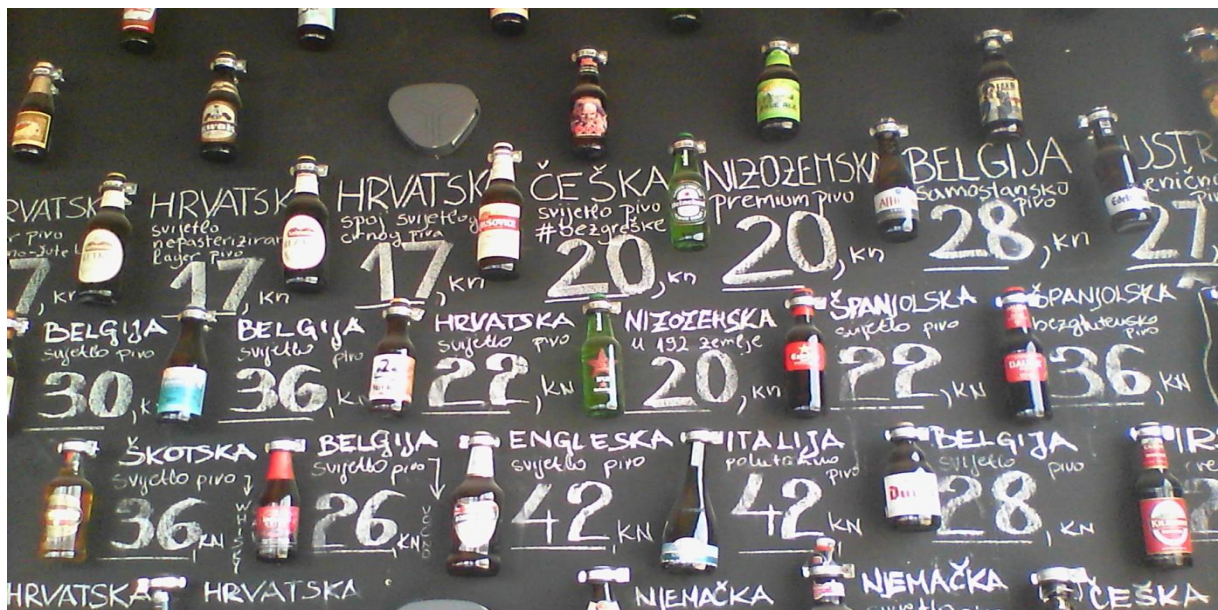 HRVATSK
svijetlo
nepasteriziran
lager pivo
17, kn
HRVATSK
spoj svijetlog
crnog piva
17, kn
ČEŠKA
svijetlo pivo
#bezgreške
20, kn
NIZOZEMSKA
premium pivo
20, kn
BELGIJA
samostansko
pivo
28, kn
USTR
27,
RVATSK
r pivo
7, kn
BELGIJA
svijetlo pivo
30, k
BELGIJA
svijetlo pivo
36, kn
HRVATSKA
svijetlo pivo
22, KN
NIZOZEMSKA
u 192 zemlje
20, kn
ŠPANJOLSKA
svijetlo pivo
22, KN
ŠPANJOLSKA
bezglutensko
pivo
36, KN
ŠKOTSKA
svijetlo pivo
36, KN
WHISKY
BELGIJA
svijetlo pivo
26, KN
ENGLESKA
svijetlo pivo
42, KN
ITALIJA
pivo
42, KN
BELGIJA
svijetlo
pivo
28, KN
HRVATSKA
HRVATSKA
NJEMAČKA
NJEMAČKA
ČEŠKA